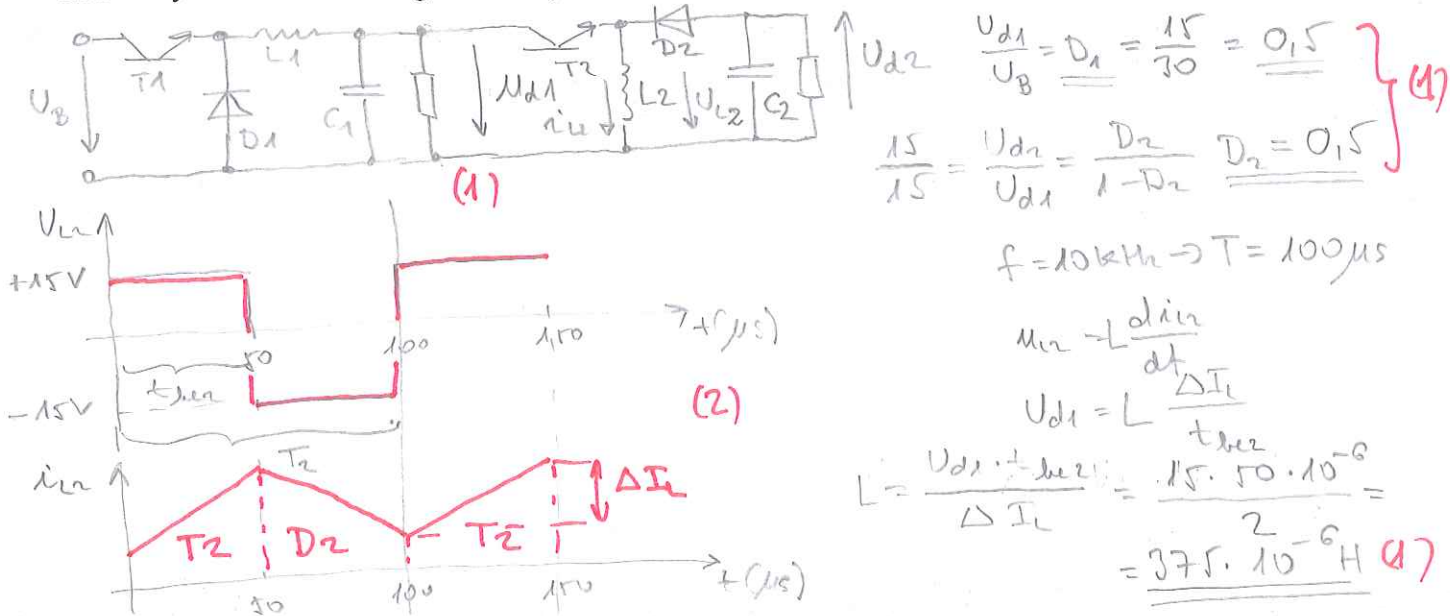 T1
L1
T2
D2
U_B
D1
C1
U_d1
i_L2
L2
U_L2
C2
U_d2
(1)
U_d1/U_B = D_1 = 15/30 = 0,5
(1)
15/15 = U_d2/U_d1 = D_2/(1-D_2) D_2 = 0,5
f = 10 kHz → T = 100 μs
u_L2 = L di_L2/dt
U_d1 = L ΔI_L/t_be2
L = U_d1 · t_be2/ΔI_L = 15 · 50 · 10^-6/2 =
= 375 · 10^-6 H (1)
U_L2
+15V
50
100
150
t (μs)
t_be2
-15V
(2)
T_2
i_L2
ΔI_L
T2
D2
T2
50
100
150
t (μs)